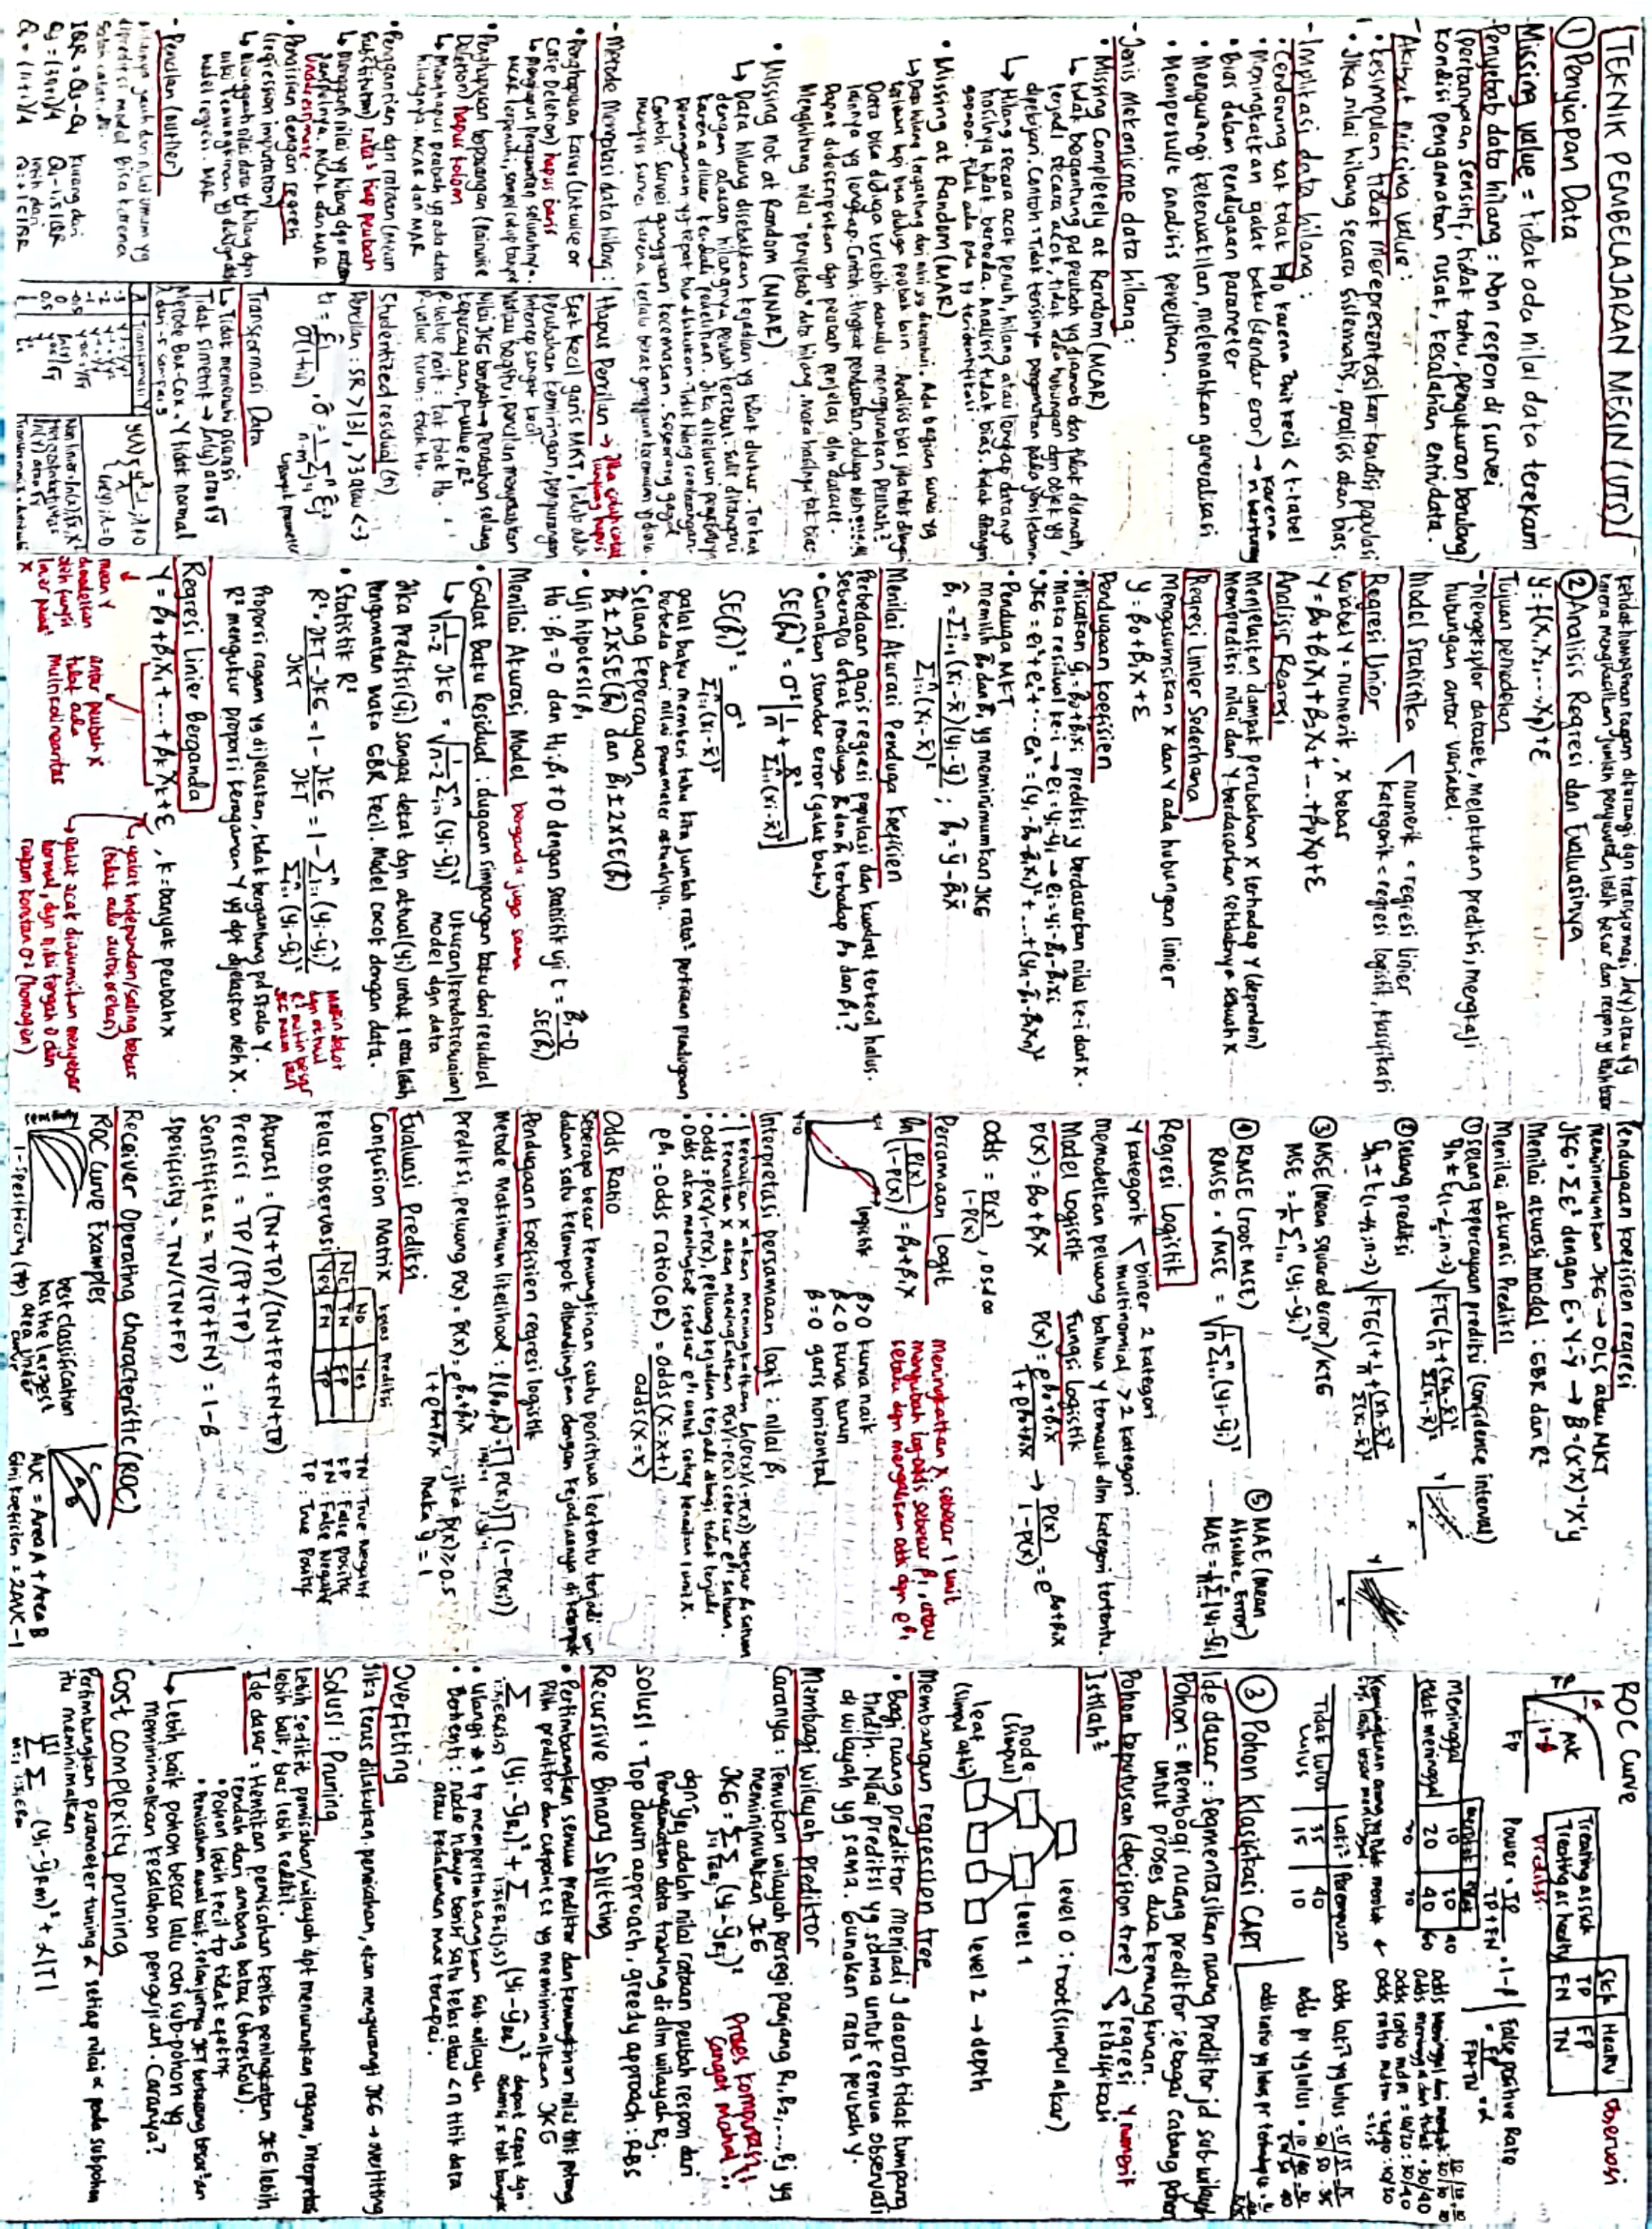 TEKNIK PEMBELAJARAN MESIN (UTS)
① Penyiapan Data
Missing value = tidak ada nilai data terekam
- Penyebab data hilang : Non respon di survei
(pertanyaan sensitif, tidak tahu, pengukuran berulang)
kondisi pengamatan rusak, kesalahan entri data.
- Akibat missing value :
• kesimpulan tidak merepresentasikan kondisi populasi
• Jika nilai hilang secara sistematis, analisis akan bias.
- Implikasi data hilang :
• Cenderung tak tolak H0 karena thit kecil < t-tabel
• Meningkatkan galat baku (standar eror) → karena n berkurang
• Bias dalam pendugaan parameter
• Mengurangi keterwakilan, melemahkan generalisasi
• Mempersulit analisis penelitian.
- Jenis Mekanisme data hilang :
• Missing Completely at Random (MCAR)
↳ tidak bergantung pd peubah yg diamati dan tidak diamati,
terjadi secara acak, tidak ada hubungan dgn objek yg
dipelajari. Contoh : Tidak terisinya pengamatan pada jenis kelamin.
↳ Hilang secara acak penuh, hilang atau lengkap datanya
hasilnya tidak berbeda. Analisis tidak bias. tidak ditangani
gapapa. tidak ada pola yg teridentifikasi.
• Missing at Random (MAR)
↳ Data hilang tergantung dari nilai yg diketahui. Ada bagian survei yg
bisa diduga peubah lain. Analisis bias jika tidak
Data bisa diduga terlebih dahulu menggunakan Peubah²
lainnya yg lengkap. Contoh : tingkat pendapatan, diduga oleh
Dapat dideskripsikan dgn peubah penjelas dlm dataset.
Menghitung nilai "penyebab" data hilang, maka hasilnya tak bias.
• Missing not at Random (MNAR)
↳ Data hilang disebabkan kejadian yg tidak diukur. Terkait
dengan alasan hilangnya peubah tersebut. Sulit ditangani
karena diluar kendali penelitian. Jika ditelusuri penyebabnya
penanganan yg tepat bisa dilakukan.
Contoh : Survei gangguan kecemasan. Seseorang gagal
mengisi survei karena terlalu berat gangguan kecemasan
- Metode Mengatasi data hilang :
• Penghapusan Kasus (Listwise or
Case Deletion) hapus baris
↳ Menghapus Pengamatan seluruhnya.
MCAR terpenuhi, sampel cukup banyak
• Penghapusan berpasangan (Pairwise
Deletion) hapus kolom
↳ Menghapus peubah yg ada data
hilangnya. MCAR dan MAR
• Penggantian dgn rataan (Mean
Substitution) rata² tiap peubah
↳ Mengganti nilai yg hilang dgn rataan
sampelnya. MCAR dan MAR
Underestimate.
• Pengisian dengan regresi
(regression imputation)
↳ Mengganti nilai data yg hilang dgn
nilai kemungkinan yg diduga dari
model regresi. MAR
- Pencilan (outlier)
nilainya jauh dari nilai umum yg
diprediksi model Bisa karena
salah catat, dll.
IQR = Q3 - Q1
Q3 = (3n+1)/4
Q1 = (n+1)/4
kurang dari
Q1 - 1,5 IQR
lebih dari
Q3 + 1,5 IQR
Hapus Pencilan → Jika salah catat langsung hapus
Efek kecil garis MKT, tidak ada
perubahan kemiringan, pengurangan
Intersep sangat kecil.
Walau begitu, pencilan menyebabkan
Nilai JKG berubah → Perubahan selang
kepercayaan, p-value, R²
P-value naik : tak tolak Ho.
P-value turun : tolak Ho.
Studentized residual (ti)
Pencilan : SR > |3|, >3 atau <-3
Transformasi Data
↳ Tidak memenuhi asumsi
Tidak simetrik → ln(y) atau √y
Metode Box-Cox. Y tidak normal
λ dari -5 sampai 5
λ Transformasi Y
-3
-2
-1
-0,5
0 ln(y)
0,5 √y
y(λ) = { (y^λ - 1)/λ ; λ≠0
ln(y) ; λ=0
Non linier = ln(x), √x, X²
Heteroskedastisitas
ln(Y) atau √Y
Ketidakhomogenan ragam dikurangi dgn transformasi ln(y) atau √y
karena menghasilkan jumlah penyusutan lebih besar dari respon yg lebih besar
② Analisis Regresi dan Evaluasinya
y = f(X1, X2, ..., Xp) + ε
Tujuan pemodelan
- Mengeksplor dataset, melakukan prediksi, mengkaji
hubungan antar variabel.
Model Statistika
numerik = regresi linier
kategorik = regresi logistik, klasifikasi
Regresi Linier
Variabel Y = numerik, X bebas
Y = β0 + β1X1 + β2X2 + ... + βpXp + ε
Analisis Regresi
Menjelaskan dampak perubahan X terhadap Y (dependen)
Memprediksi nilai dari Y berdasarkan setidaknya sebuah X
Regresi Linier Sederhana
Mengasumsikan X dan Y ada hubungan linier
y = β0 + β1X + ε
Pendugaan koefisien
• Misalkan ŷi = β̂0 + β̂1xi prediksi y berdasarkan nilai ke-i dari X.
• Maka residual ke-i → ei = yi - ŷi → ei = yi - β̂0 - β̂1xi
• JKG = e1² + e2² + ... en² = (y1 - β̂0 - β̂1x1)² + ... + (yn - β̂0 - β̂1xn)²
• Penduga MKT
Memilih β̂0 dan β̂1 yg meminimumkan JKG
β̂1 = Σⁿi=1 (xi - x̄)(yi - ȳ) / Σⁿi=1 (xi - x̄)² ; β̂0 = ȳ - β̂1x̄
Menilai Akurasi Penduga Koefisien
Perbedaan garis regresi populasi dan kuadrat terkecil halus.
Seberapa dekat penduga β̂0 dan β̂1 terhadap β0 dan β1?
• Gunakan standar error (galat baku)
SE(β̂0)² = σ² [1/n + x̄² / Σⁿi=1 (xi - x̄)²]
SE(β̂1)² = σ² / Σⁿi=1 (xi - x̄)²
galat baku memberi tahu kita jumlah rata² perkiraan pendugaan
berbeda dari nilai parameter aktualnya.
• Selang Kepercayaan
β̂0 ± 2×SE(β̂0) dan β̂1 ± 2×SE(β̂1)
• Uji hipotesis β1
H0 : β1 = 0 dan H1 : β1 ≠ 0 dengan Statistik uji t = (β̂1 - 0) / SE(β̂1)
Menilai Akurasi Model berganda juga sama
• Galat Baku Residual : dugaan simpangan baku dari residual
↳ √(1/(n-2) JKG) = √(1/(n-2) Σⁿi=1 (yi - ŷi)²) Ukuran ketidaksesuaian model dgn data
Jika prediksi (ŷi) sangat dekat dgn aktual (yi) untuk 1 atau lebih
Pengamatan maka GBR kecil. Model cocok dengan data.
• Statistik R²
R² = (JKT - JKG) / JKT = 1 - JKG / JKT = 1 - Σⁿi=1 (yi - ŷi)² / Σⁿi=1 (yi - ȳi)²
Makin dekat
dgn aktual
R² makin besar
JKG makin kecil
Proporsi ragam yg dijelaskan, tidak bergantung pd skala Y.
R² mengukur proporsi keragaman Y yg dpt dijelaskan oleh X.
Regresi Linier Berganda
Y = β0 + β1X1 + ... + βkXk + ε, k = banyak peubah x
mean Y
dimodelkan
oleh fungsi
linier
X
antar peubah X
tidak ada
multikolinearitas
↳ galat independen/saling bebas
(tidak ada autokorelasi)
↳ galat acak diasumsikan menyebar
normal, dgn nilai tengah 0 dan
ragam konstan σ² (homogen)
Pendugaan koefisien regresi
Meminimumkan JKG → OLS atau MKT
JKG = Σε² dengan ε = Y - Ŷ → β̂ = (X'X)⁻¹X'y
Menilai akurasi model : GBR dan R²
Menilai akurasi Prediksi
① Selang kepercayaan prediksi (confidence interval)
ŷh ± t(1-α/2; n-2) √(KTG(1/n + (xh - x̄)² / Σ(xi - x̄)²))
Y
X
② Selang prediksi
ŷh ± t(1-α/2; n-2) √(KTG(1 + 1/n + (xh - x̄)² / Σ(xi - x̄)²))
Y
X
③ MSE (mean squared error)/KTG
MSE = 1/n Σⁿi=1 (yi - ŷi)²
④ RMSE (root MSE)
RMSE = √MSE = √(1/n Σⁿi=1 (yi - ŷi)²)
⑤ MAE (mean
Absolute Error)
MAE = 1/n Σ |yi - ŷi|
Regresi Logistik
Y kategorik
biner 2 kategori
multinomial > 2 kategori
Memodelkan peluang bahwa Y termasuk dlm kategori tertentu.
Model Logistik
P(X) = β0 + β1X
Fungsi Logistik
P(X) = e^(β0+β1X) / (1 + e^(β0+β1X)) → P(X) / (1 - P(X)) = e^(β0+β1X)
odds = P(x) / (1 - P(x)), 0≤ ∞
Persamaan Logit
ln(P(X) / (1 - P(X))) = β0 + β1X
Meningkatkan X sebesar 1 unit
mengubah log-odds sebesar β1, atau
setara dgn mengalikan odds dgn e^β1
logistik
Y=0
β>0 kurva naik
β<0 kurva turun
β=0 garis horizontal
Interpretasi persamaan logit : nilai β1
• 1 kenaikan X akan meningkatkan ln(P(X)/1-P(X)) sebesar β1 satuan
• 1 kenaikan X akan meningkatkan P(X)/1-P(X) sebesar e^β1 satuan.
• odds = P(X)/1-P(X), peluang kejadian terjadi dibagi tidak terjadi
• Odds akan meningkat sebesar e^β1 untuk setiap kenaikan 1 unit X.
e^β1 = odds ratio (OR) = odds(X=x+1) / odds(X=x)
Odds Ratio
Seberapa besar kemungkinan suatu peristiwa tertentu terjadi
dalam satu kelompok dibandingkan dengan kejadiannya, di kelompok
Pendugaan koefisien regresi logistik
Metode Maksimum Likelihood : ℓ(β0,β1) = ∏ P(xi) ∏ (1 - P(xi))
Prediksi peluang P(X) = P̂(X) = e^(β̂0+β̂1X) / (1 + e^(β̂0+β̂1X)), jika P̂(X) ≥ 0.5
maka ŷ = 1
Evaluasi Prediksi
Confusion Matrix
Kelas Prediksi
No Yes
Kelas observasi
No TN FP
Yes FN TP
TN : True Negatif
FP : False Positif
FN : False Negatif
TP : True Positif
Akurasi = (TN+TP)/(TN+FP+FN+TP)
Presisi = TP/(FP+TP)
Sensitifitas = TP/(TP+FN) = 1-β
Spesifisity = TN/(TN+FP)
Receiver Operating Characteristic (ROC)
ROC Curve Examples
1-Spesifisity (FP)
best classification
has the largest
area under
curve
C
A
B
AUC = Area A + Area B
Gini koefisien = 2AUC - 1
ROC Curve
TP
α
AUC
1-β
FP
Sick Healthy Observasi
Treating as sick TP FP
Treating as healthy FN TN
Prediksi
Power = TP / (TP+FN) = 1-β
False positive Rate
= FP / (FP+TN) = α
Meninggal 10 30 40
tidak meninggal 20 40 60
30 70
Odds ratio mdm = 10/20 : 30/40
Laki² Perempuan
Tidak lulus 35 40
Lulus 15 10
odds laki² yg lulus = 15/35
odds pr yg lulus = 10/40
③ Pohon Klasifikasi CART
Ide dasar : Segmentasikan ruang prediktor jd sub-wilayah
Pohon = Membagi ruang prediktor sebagai cabang pohon
untuk proses dua kemungkinan.
Pohon keputusan (decision tree)
regresi Y numerik
klasifikasi
Istilah²
level 0 : root (simpul akar)
node
(simpul)
level 1
leaf
(simpul akhir)
level 2 → depth
Membangun regression tree
• Bagi ruang prediktor menjadi J daerah tidak tumpang
tindih. Nilai prediksi yg sama untuk semua observasi
di wilayah yg sama. Gunakan rata² peubah Y.
Membagi wilayah prediktor
Caranya : Temukan wilayah persegi panjang R1, R2, ..., Rj yg
meminimumkan JKG
JKG = Σ Σ (yi - ŷRj)²
Proses komputasi
sangat mahal!!
dgn ŷRj adalah nilai rataan peubah respon dari
Pengamatan data training di dlm wilayah Rj.
Solusi : Top down approach, greedy approach : RBS
Recursive Binary Splitting
• Pertimbangkan semua prediktor dan kemungkinan nilai titik potong
Pilih prediktor dan cutpoint s.t yg meminimalkan JKG
Σ i:xi∈R1(j,s) (yi - ŷR1)² + Σ i:xi∈R2(j,s) (yi - ŷR2)² dapat cepat dgn
asumsi x tdk banyak
• Ulangi #1 tp mempertimbangkan sub-wilayah
• Berhenti : node hanya berisi satu kelas atau < n titik data
atau kedalaman max tercapai.
Overfitting
Jika terus dilakukan pemisahan, akan mengurangi JKG → overfitting
Solusi : Pruning
Lebih sedikit pemisahan/wilayah dpt menurunkan ragam, interpretasi
lebih baik, bias lebih sedikit.
Ide dasar : Hentikan pemisahan ketika peningkatan JKG lebih
rendah dari ambang batas (threshold).
• Pohon lebih kecil tp tidak efektif
• Pemisahan awal baik, selanjutnya JKT berkurang besar²an
↳ Lebih baik pohon besar lalu cari sub-pohon yg
meminimalkan kesalahan pengujian. Caranya?
Cost complexity pruning
Pertimbangkan parameter tuning α setiap nilai α pada subpohon
itu meminimalkan
Σ Σ (yi - ŷRm)² + α|T|